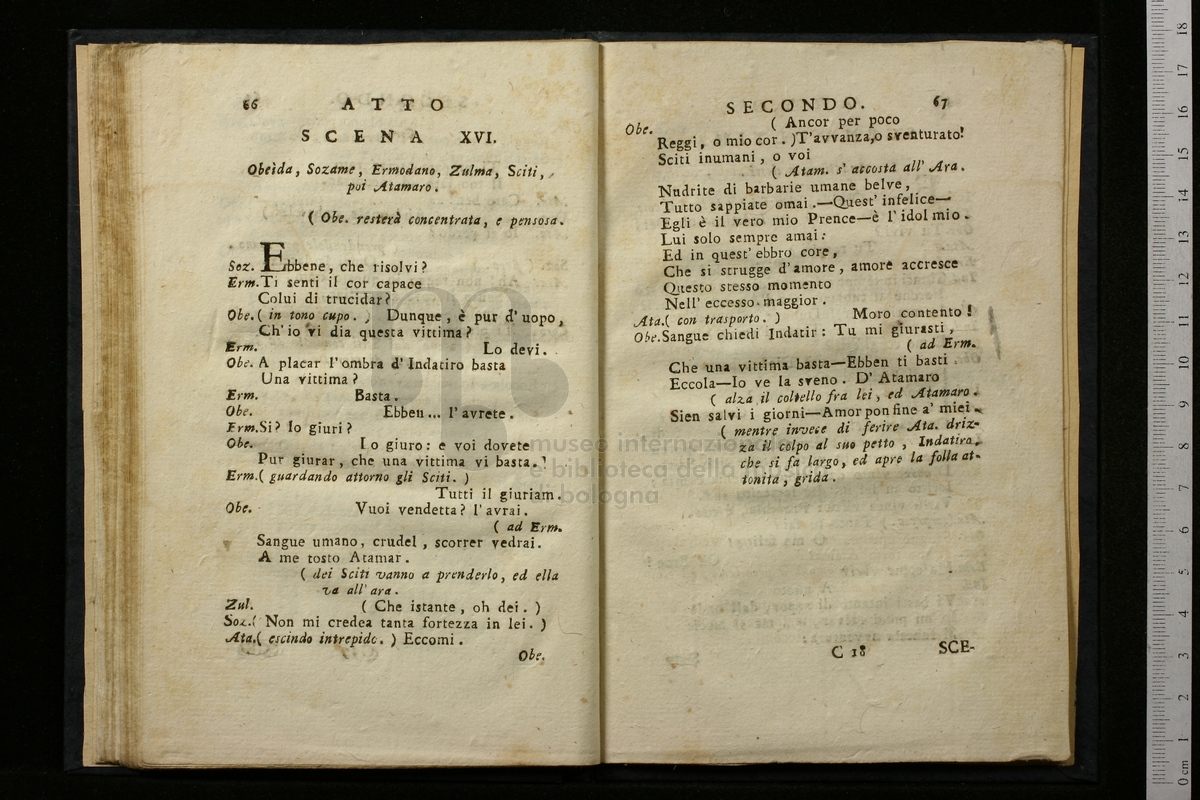 66 ATTO
SCENA XVI.
Obeida, Sozame, Ermodano, Zulma, Sciti,
poi Atamaro.
( Obe. resterà concentrata, e pensosa.
Soz. Ebbene, che risolvi?
Erm. Ti senti il cor capace
Colui di trucidar?
Obe. ( in tono cupo. ) Dunque, è pur d'uopo,
Ch'io vi dia questa vittima?
Erm. Lo devi.
Obe. A placar l'ombra d'Indatiro basta
Una vittima?
Erm. Basta.
Obe. Ebben... l'avrete.
Erm. Si? Io giuri?
Obe. Io giuro: e voi dovete
Pur giurar, che una vittima vi basta.
Erm. ( guardando attorno gli Sciti. )
Tutti il giuriam.
Obe. Vuoi vendetta? l'avrai.
( ad Erm.
Sangue umano, crudel, scorrer vedrai.
A me tosto Atamar.
( dei Sciti vanno a prenderlo, ed ella
va all'ara.
Zul. ( Che istante, oh dei. )
Soz. ( Non mi credea tanta fortezza in lei. )
Ata. ( escindo intrepido. ) Eccomi.
Obe.
SECONDO. 67
Obe. ( Ancor per poco
Reggi, o mio cor. ) T'avvanza, o sventurato!
Sciti inumani, o voi
( Atam. s'accosta all'Ara.
Nudrite di barbarie umane belve,
Tutto sappiate omai.—Quest'infelice—
Egli è il vero mio Prence—è l'idol mio.
Lui solo sempre amai:
Ed in quest'ebbro core,
Che si strugge d'amore, amore accresce
Questo stesso momento
Nell'eccesso maggior.
Ata. ( con trasporto. ) Moro contento!
Obe. Sangue chiedi Indatir: Tu mi giurasti,
( ad Erm.
Che una vittima basta—Ebben ti basti
Eccola—Io ve la sveno. D'Atamaro
( alza il coltello fra lei, ed Atamaro.
Sien salvi i giorni—Amor pon fine a' miei
( mentre invece di ferire Ata. driz-
za il colpo al suo petto, Indatira,
che si fa largo, ed apre la folla at-
tonita, grida.
C 18 SCE-
museo internazionale
biblioteca della musica
di bologna
18
17
16
15
14
13
12
11
10
9
8
7
6
5
4
3
2
1
0 cm